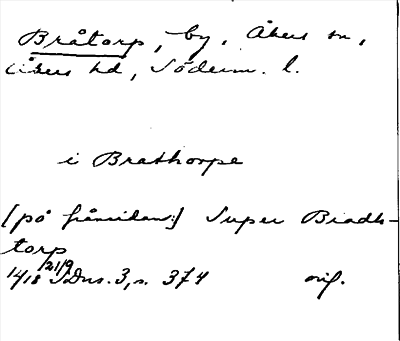 Bråtorp, by, Åkers sn,
Åkers hd, Söderm. l.
i Brathorpe
[på frånsidan:] Super Bradh-
torp
1418 21/9 SDns. 3, s. 374 orig.